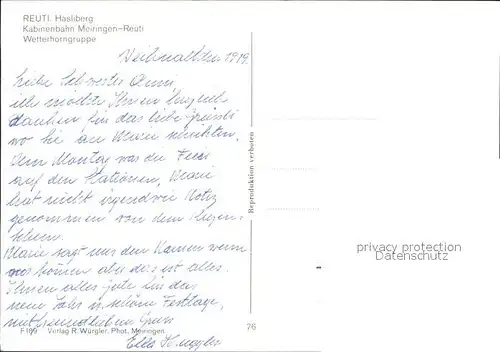 REUTI. Hasliberg
Kabinenbahn Meiringen-Reuti
Wetterhorngruppe
Weihnachten 1979.
Liebe Schwester Anni
ich möchte Ihnen
danken für das liebe grüssli
wo Sie an Marie schickten.
Am Montag war die Feier
auf den Stationen, Marie
hat nicht irgendwie Notiz
genommen von dem
Marie sagt nur den Namen wenn
wir kommen aber das ist alles.
Ihnen alles gute für das
neue Jahr u. schöne Festtage,
mit freundlichen Grüss
Ella
F 189 Verlag R. Würgler, Phot. Meiringen
76
Reproduktion verboten
privacy protection
Datenschutz